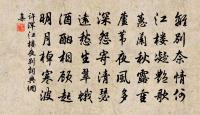 離別奈情何
江樓凝艷歌
蕙蘭秋露重
蘆葦夜風多
深怨寄清瑟
遠愁生翠蛾
酒酣相顧起
明月棹寒波
許渾江樓夜別詞典網
集